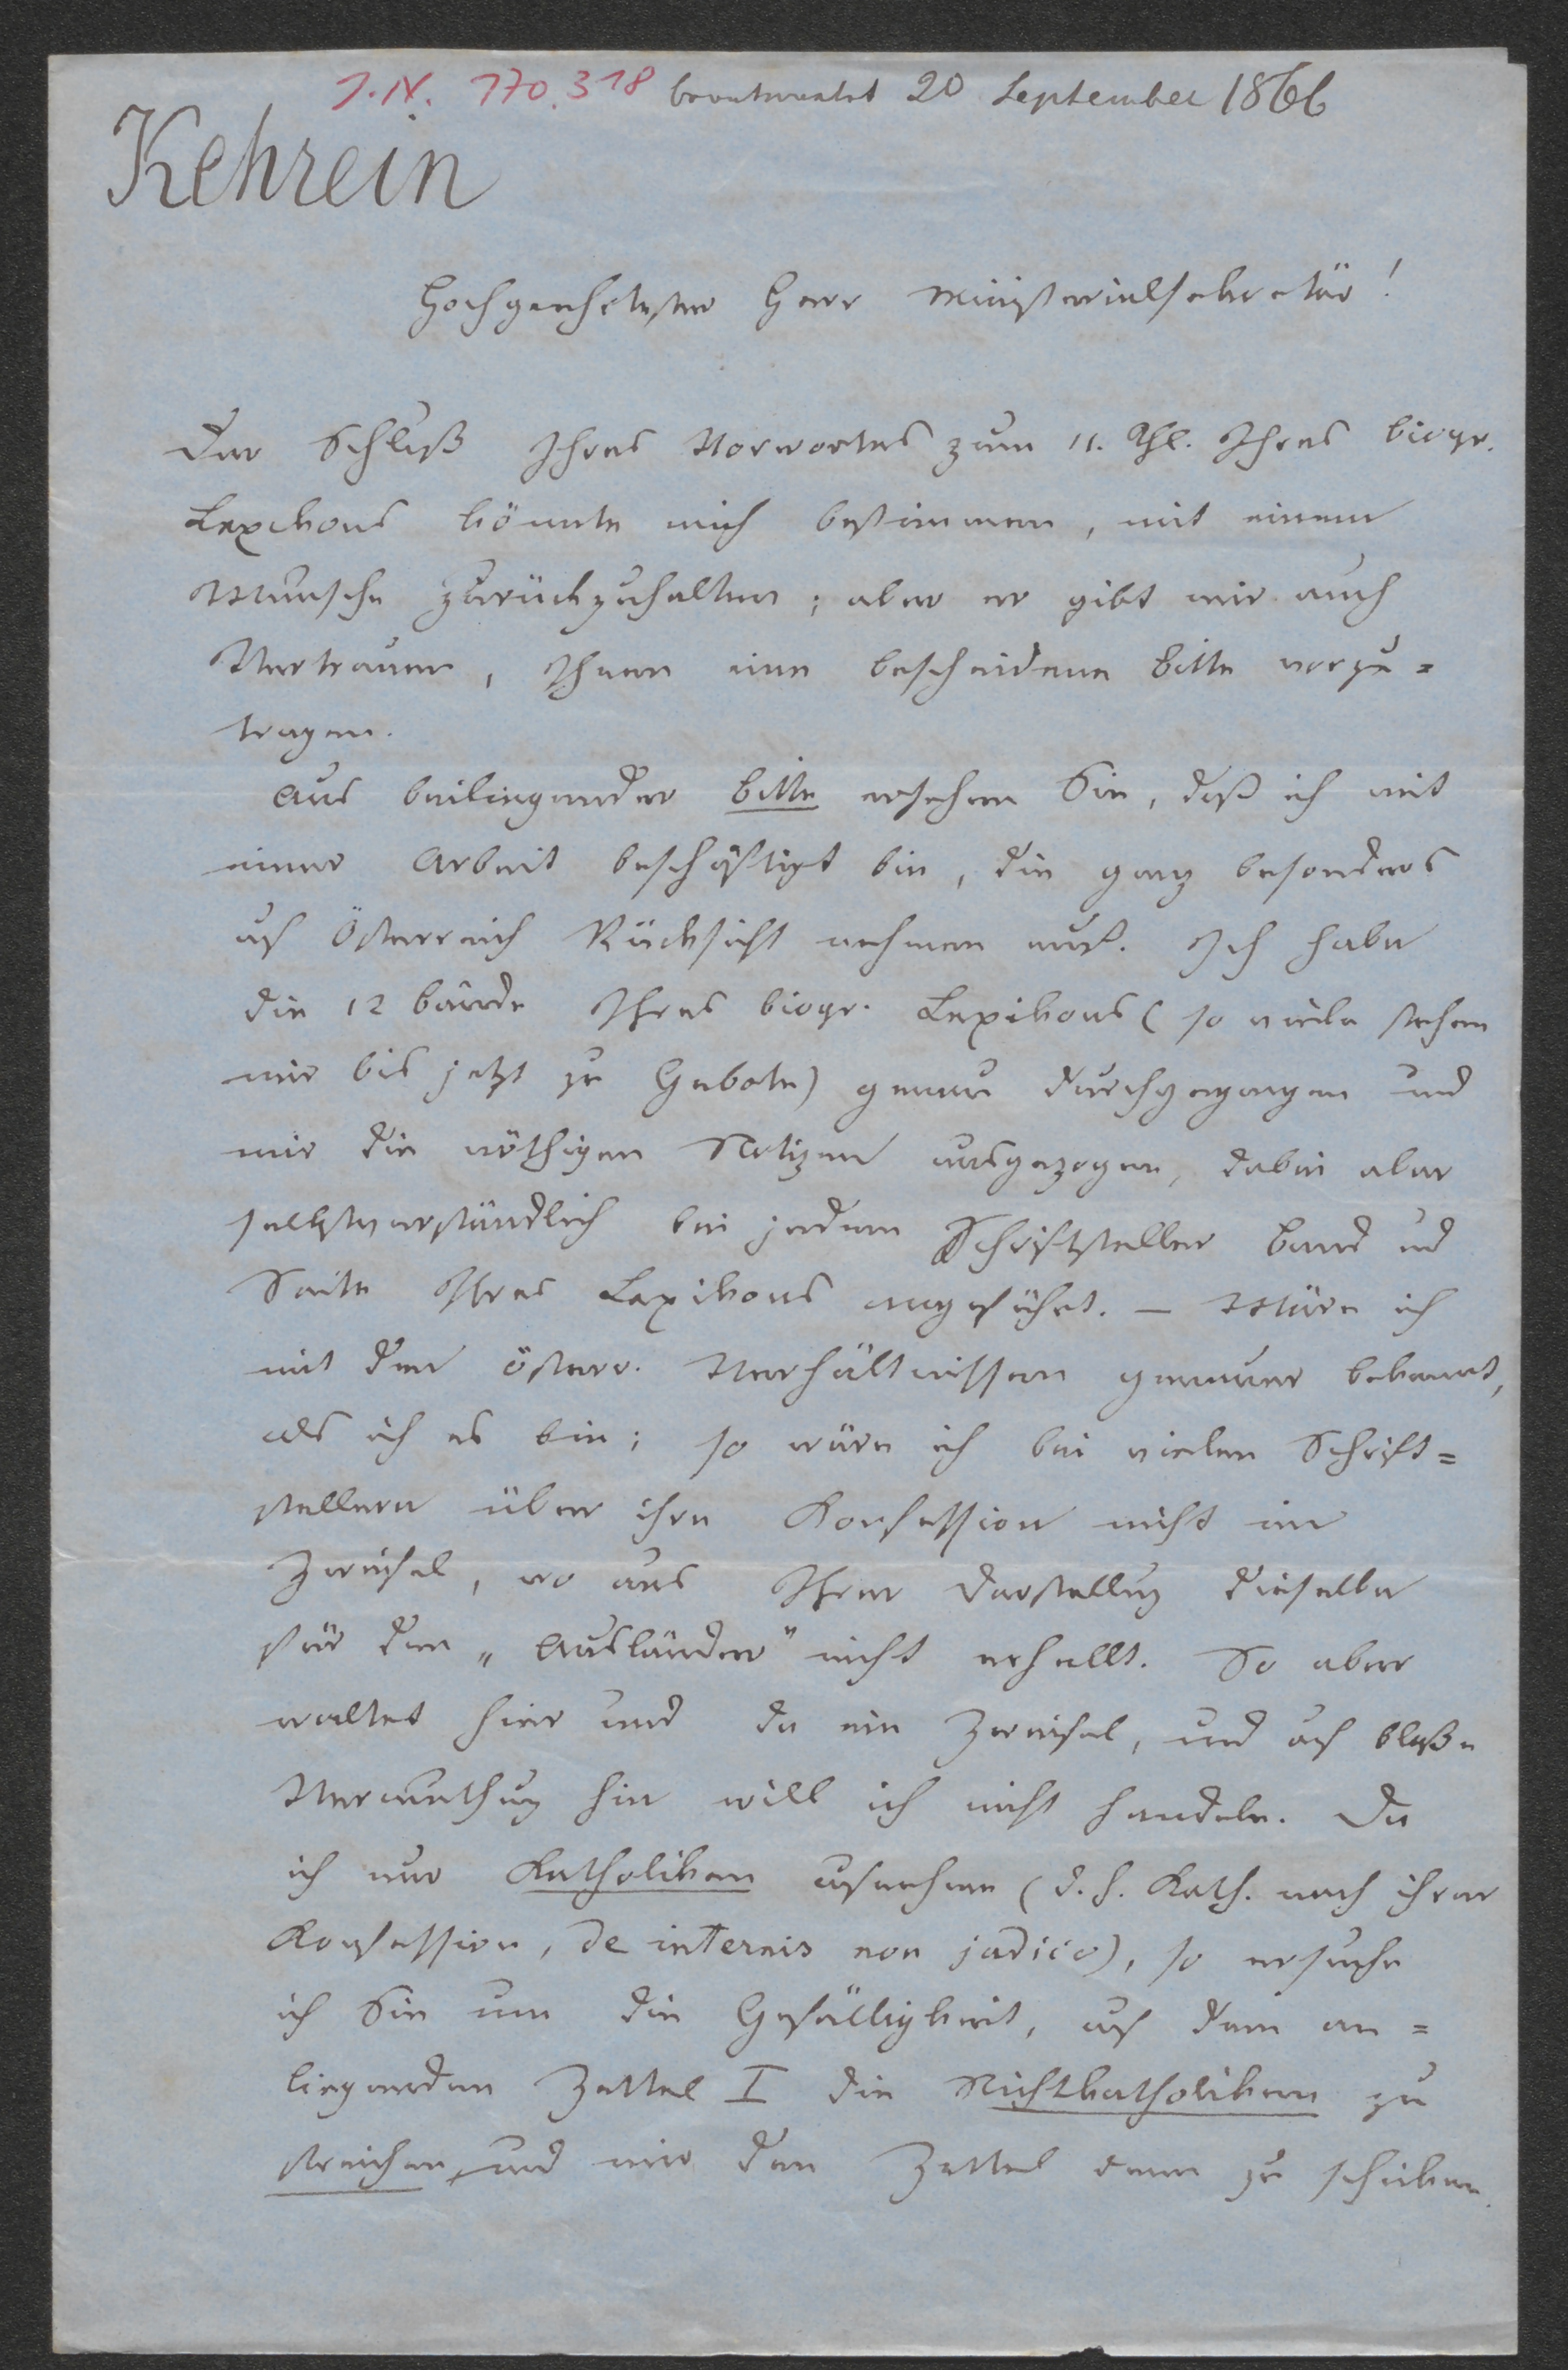 I.N. 170.318 beantwortet 20 September 1866
Kehrein
Hochgeehrtester Herr Ministerialsekretär!
Der Schluß Ihres Vorwortes zum 11. Thl. Ihres biogr.
Lexikons könnte mich bestimmen, mit einem
Wunsche zurückzuhalten; aber er gibt mir auch
Vertrauen, Ihnen eine bescheidene Bitte vorzu=
tragen.
Aus beiliegender Bitte ersehen Sie, daß ich mit
einer Arbeit beschäftigt bin, die ganz besonders
auf Österreich Rücksicht nehmen muß. Ich habe
die 12 Bände Ihres biogr. Lexikons (so viele stehen
mir bis jetzt zu Gebote) genau durchgegangen und
mir die nöthigen Notizen ausgezogen, dabei aber
selbstverständlich bei jedem Schriftsteller Band und
Seite Ihres Lexikons angeführt. – Wäre ich
mit den österr. Verhältnissen genauer bekannt,
als ich es bin; so wäre ich bei vielen Schrift=
stellern über ihre Konfession nicht im
Zweifel, wo aus Ihrer Darstellung dieselbe
für den „Ausländer" nicht erhellt. So aber
waltet hier und da ein Zweifel, und auf bloße
Vermuthung hin will ich nicht handeln. Da
ich nur Katholiken aufnehme (d. h. Kath. nach ihrer
Konfession, de internis non judico), so ersuche
ich Sie um die Gefälligkeit, auf dem an=
liegenden Zettel I die Nichtkatholiken zu
streichen und mir den Zettel dann zu schicken.